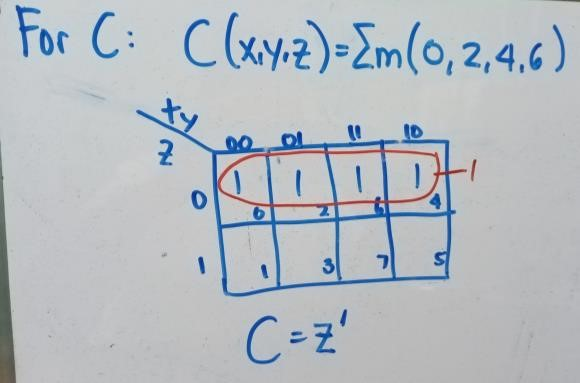 For C: C(x,y,z)=Σm(0,2,4,6)
xy
z
00 01 11 10
0 1 1 1 1 1
0 2 6 4
1
1 3 7 5
C=z'